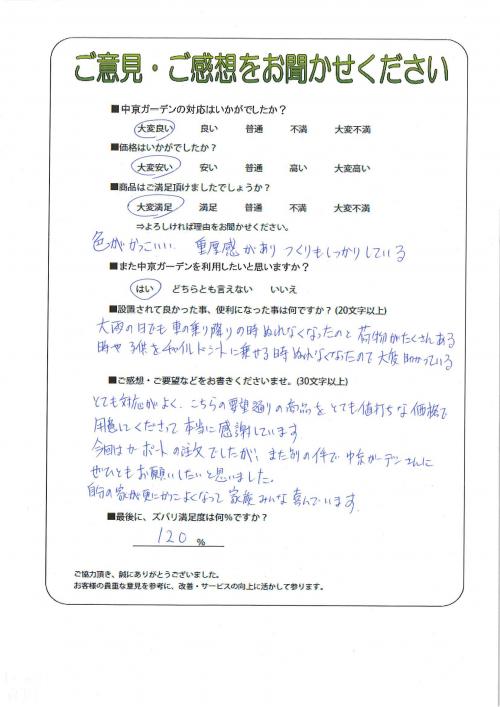 ご意見・ご感想をお聞かせください
■中京ガーデンの対応はいかがでしたか？
大変良い 良い 普通 不満 大変不満
■価格はいかがでしたか？
大変安い 安い 普通 高い 大変高い
■商品はご満足頂けましたでしょうか？
大変満足 満足 普通 不満 大変不満
⇒よろしければ理由をお聞かせください。
色がかっこいい 重厚感があり つくりもしっかりしている
■また中京ガーデンを利用したいと思いますか？
はい どちらとも言えない いいえ
■設置されて良かった事、便利になった事は何ですか？(20文字以上)
大雨の日でも車の乗り降りの時ぬれなくなったのと荷物がたくさんある
時や子供をチャイルドシートに乗せる時ぬれなくなったので大変助かっている
■ご感想・ご要望などをお書きくださいませ。(30文字以上)
とても対応がよく、こちらの要望通りの商品をとても値打ちな価格で
用意してくださって本当に感謝しています
今回はカーポートの注文でしたが、また別の件で中京ガーデンさんに
ぜひともお願いしたいと思いました。
自分の家が更にかっこよくなって家族みんな喜んでいます。
■最後に、ズバリ満足度は何％ですか？
120 %
ご協力頂き、誠にありがとうございました。
お客様の貴重な意見を参考に、改善・サービスの向上に活かして参ります。